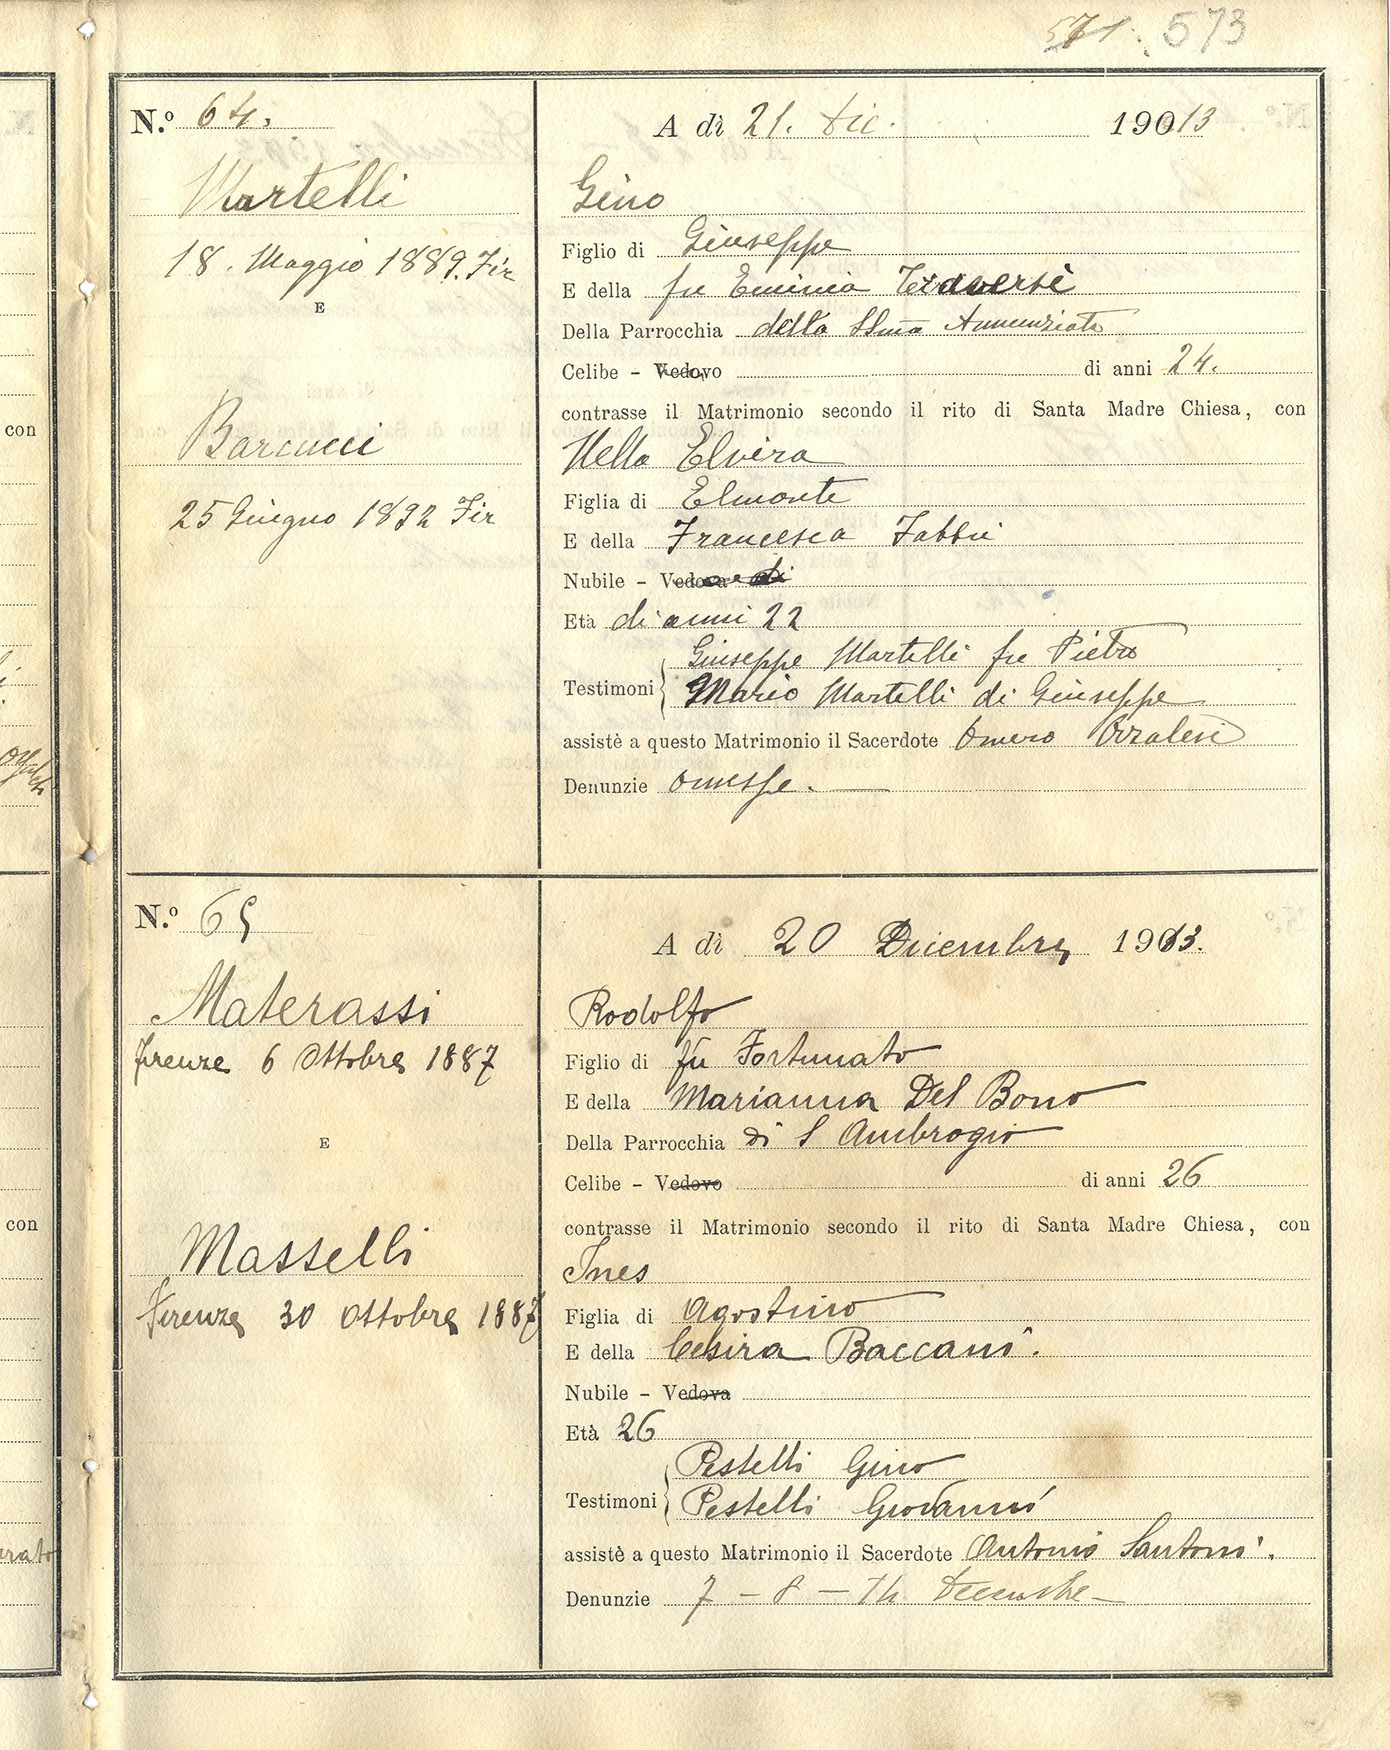 571. 573
N.º 64.
Martelli
18. Maggio 1889. Fir
E
Barcucci
25 Giugno 1892 Fir
A dì 21. Dic. 19013
Gino
Figlio di Giuseppe
E della fu Eminia Traversi
Della Parrocchia della SSma Annunziata
Celibe - Vedovo di anni 24.
contrasse il Matrimonio secondo il rito di Santa Madre Chiesa, con
Nella Elvira
Figlia di Elmonte
E della Francesca Fabbri
Nubile - Vedova di
Età di anni 22
Giuseppe Martelli fu Pietro
Testimoni
Mario Martelli di Giuseppe
assistè a questo Matrimonio il Sacerdote Omero Orzalesi
Denunzie omesse.
N.º 65
Materassi
firenze 6 Ottobre 1887
E
Masselli
firenze 30 Ottobre 1887
A dì 20 Dicembre 1913.
Rodolfo
Figlio di fu Fortunato
E della Marianna Del Bono
Della Parrocchia di S Ambrogio
Celibe - Vedovo di anni 26
contrasse il Matrimonio secondo il rito di Santa Madre Chiesa, con
Ines
Figlia di Agostino
E della Cesira Baccani.
Nubile - Vedova
Età 26
Pestelli Gino
Testimoni
Pestelli Giovanni
assistè a questo Matrimonio il Sacerdote Antonio Santoni.
Denunzie 7 - 8 - 14 Decembre
con
con